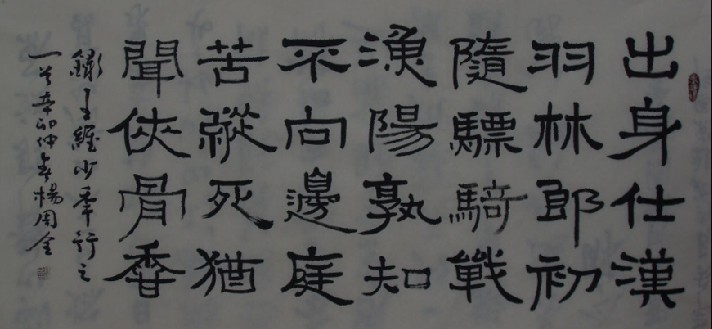 出身仕漢
羽林郎初
隨驃騎戰
漁陽孰知
不向邊庭
苦縱死猶
聞俠骨香
錄王維少年行之
一首辛卯仲楊周全